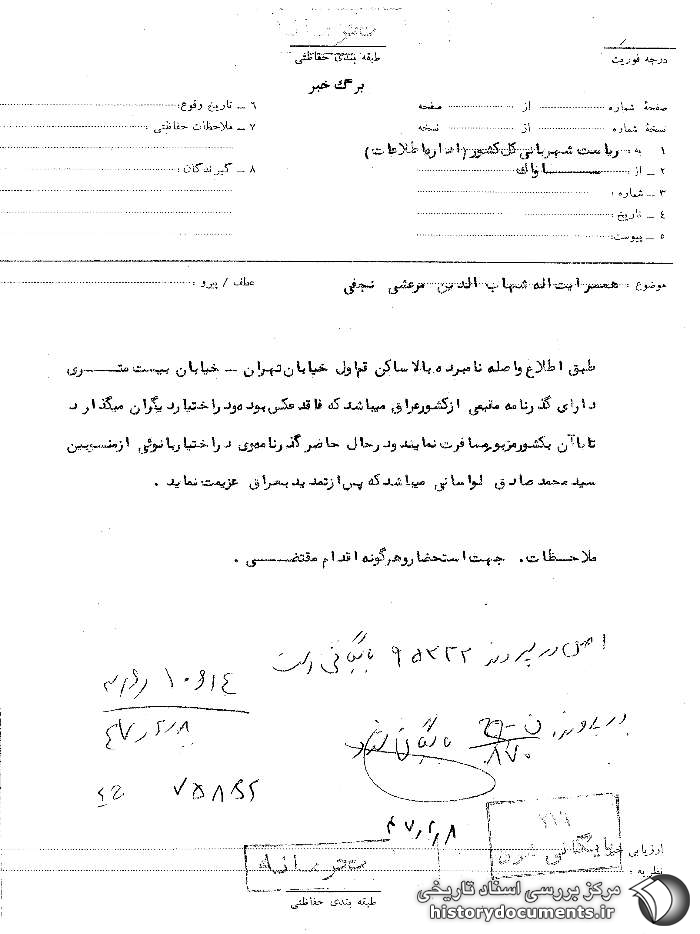 محرمانه
طبقه بندی حفاظتی
درجه فوریت
برگ خبر
صفحهٔ شماره از صفحه
نسخهٔ شماره از نسخه
۱ به ریاست شهربانی کل کشور (اداره اطلاعات)
۲ ـ از ساواک
۳ ـ شماره :
٤ ـ تاریخ :
٥ ـ پیوست:
٦ ـ تاریخ وقوع:
۷ ـ ملاحظات حفاظتی :
۸ ـ گیرندگان :
موضوع : همسر ایت اله شهاب الدین مرعشی نجفی
عطف / پیرو :
طبق اطلاع واصله نامبرده بالا ساکن قم اول خیابان تهران ـ خیابان بیست متری
دارای گذرنامه مقیمی ازکشور عراق میباشد که فاقد عکس بوده و در اختیار دیگران میگذارد
تا با آن بکشور مزبور مسافرت نمایند در حال حاضر گذرنامه وی در اختیار بانوئی از منسوبین
سید محمد صادق لواسانی میباشد که پس از تمدید بعراق عزیمت نماید .
ملاحظات . جهت استحضار و هرگونه اقدام مقتضی .
اصل در پرونده ۹۵۳۲۲ بایگانی است
در پرونده
۸۷۰
بایگانی شود
٤٧٫٢٫٨
٤٧٫٢٫٨
بایگانی شود
ارزیابی خبر
نظریه :
محرمانه
طبقه بندی حفاظتی
مرکز بررسی اسناد تاریخی
historydocuments.ir